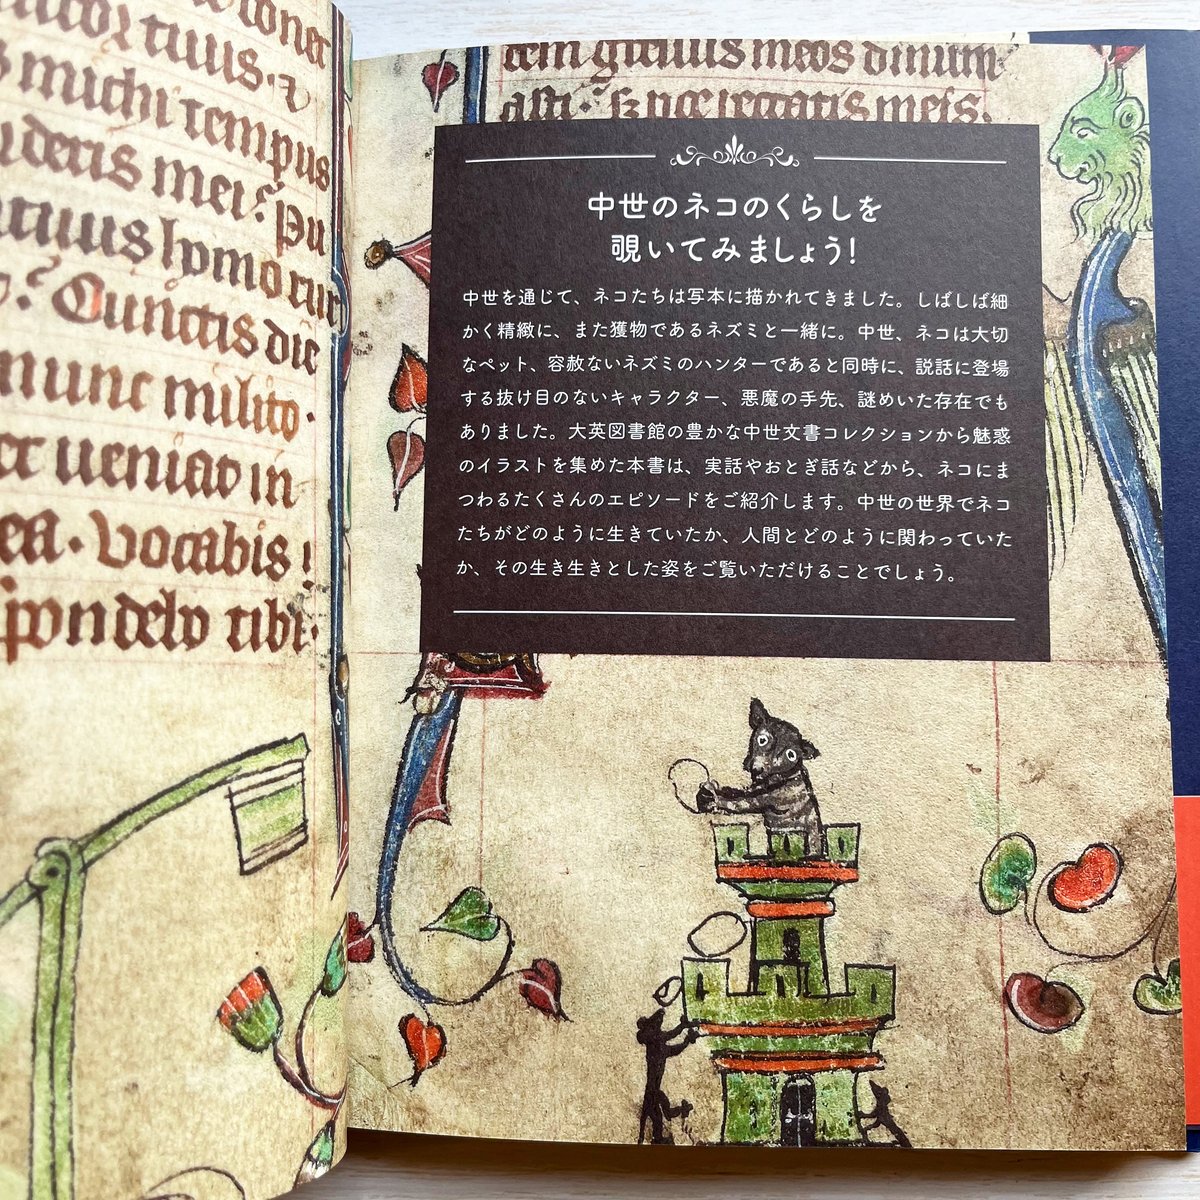 tuus
michi tempus
deris mei
Cunctis die
nunc milito
ueniad in
Vocabis
spondebo tibi
meos dinum
중세のネコのくらしを
覗いてみましょう!
中世を通じて、ネコたちは写本に描かれてきました。しばしば細
かく精緻に、また獲物であるネズミと一緒に。中世、ネコは大切
なペット、容赦ないネズミのハンターであると同時に、説話に登場
する抜け目のないキャラクター、悪魔の手先、謎めいた存在でも
ありました。大英図書館の豊かな中世文書コレクションから魅惑
のイラストを集めた本書は、実話やおとぎ話などから、ネコにま
つわるたくさんのエピソードをご紹介します。中世の世界でネコ
たちがどのように生きていたか、人間とどのように関わっていた
か、その生き生きとした姿をご覧いただけることでしょう。